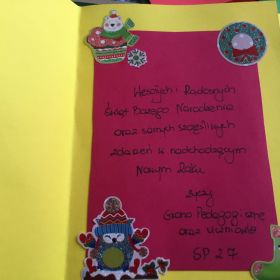 Wesołych i Radosnych
Świąt Bożego Narodzenia
oraz samych szczęśliwych
zdarzeń w nadchodzącym
Nowym Roku
życzy
Grono Pedagogiczne
oraz uczniowie
SP 27